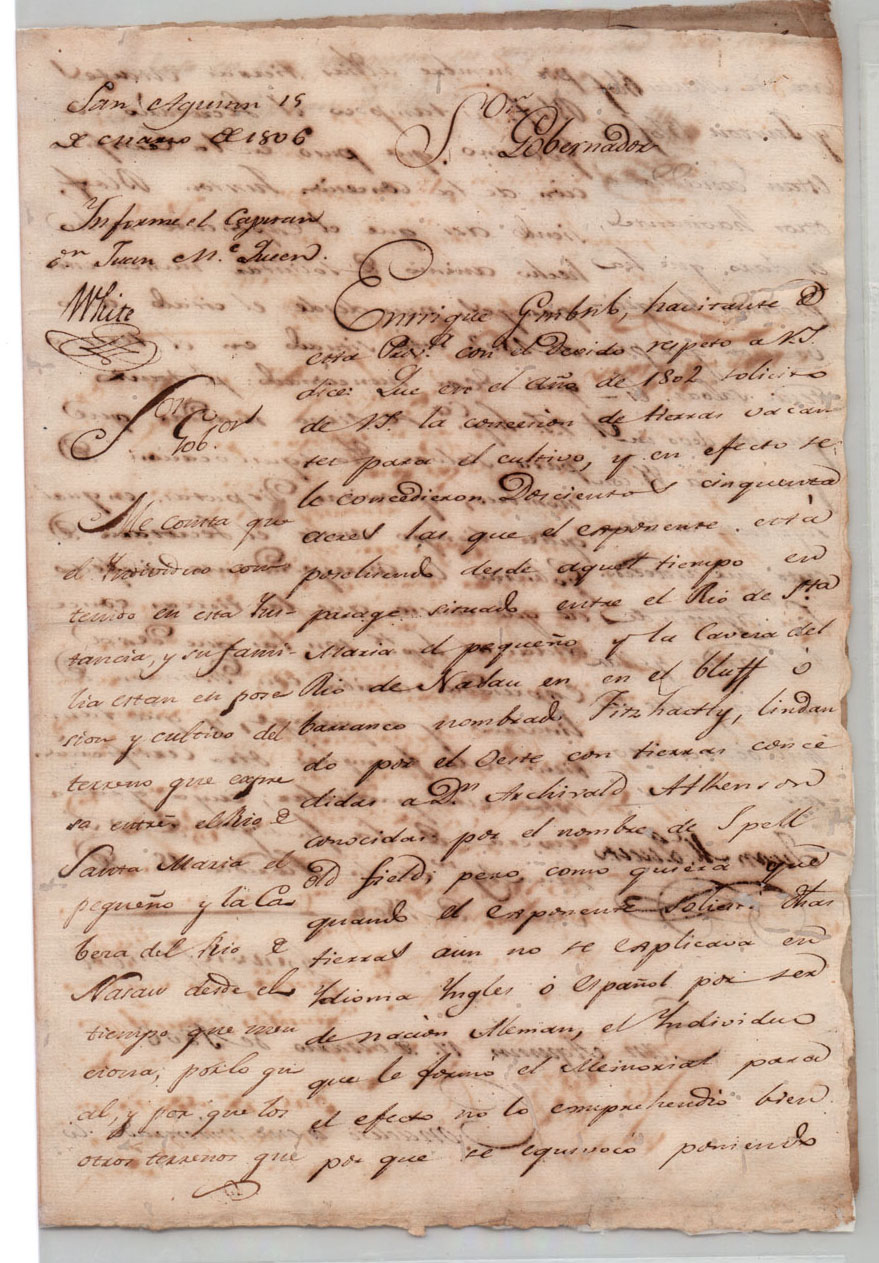 San Agustin 15
de Marzo de 1806
Sor. Gobernador
Informe el Capitan
Dn. Juan Mc. Queen.
White
Sor. Gobor.
Me consta que
el Individuo con
tenido en esta Ins-
tancia, y su fami-
lia estan en pose
sion y cultivo del
terreno que expre
sa entre el Rio de
Santa Maria el
pequeño y la Ca
bera del Rio de
Nasau desde el
tiempo que men
ciona; por lo qu
al, y por que los
otros terrenos que
Enrrique havitante de
esta Prova. con el Devido respeto a V.S.
dice: Que en el Año de 1802 solicito
de V.S. la concesion de tierras vacan
tes para el cultivo, y en efecto se
le concedieron Doscientos cinquenta
acres las que el exponente está
poseliendo desde aquel tiempo en
parage situado entre el Rio de Sta
Maria el pequeño y la Cavera del
Rio de Nasau en en el bluff ó
barranco nombrado lindan
do por el Oeste con tierras conce
didas a Dn. Archivald Athenson
conocidas por el nombre de Spell
old field; pero como quiera que
quando el exponente solicitó dhas
tierras aun no se esplicava en
Ydioma Yngles ó Español por ser
de nacion Aleman, el Yndividuo
que le formo el Memorial para
el efecto no lo emprehendio bien
por que se equivocó poniendo